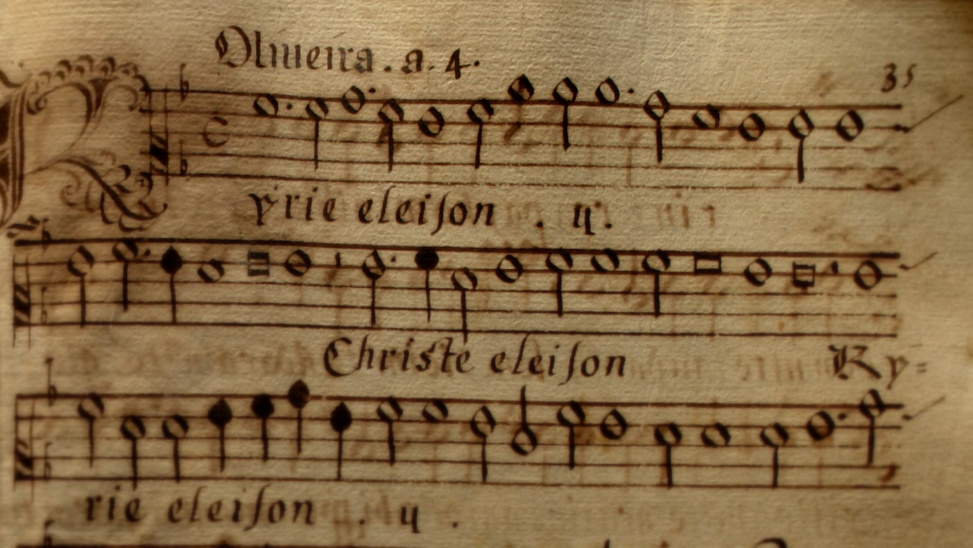 Oliueira . a. 4.
35
Kyrie eleiſon . ij.
Christe eleiſon Ky=
rie eleiſon . ij .